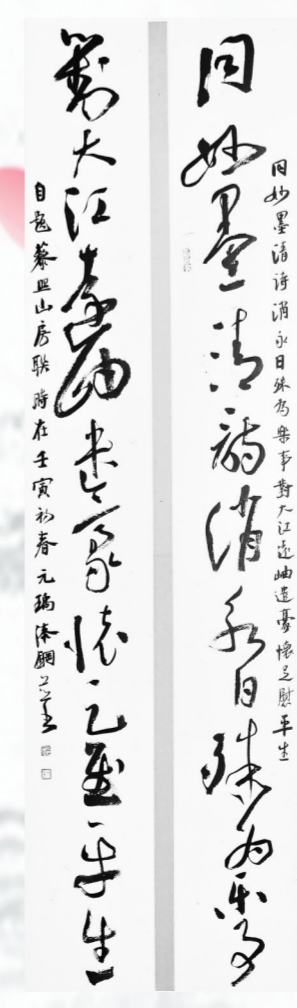 同妙墨清诗消永日殊为乐事
同妙墨清诗消永日殊为乐事對大江遠岫遣憂懷足慰平生
對大江遠岫遣憂懷足慰平生
自題藜照山房联時在壬寅初春元瑞